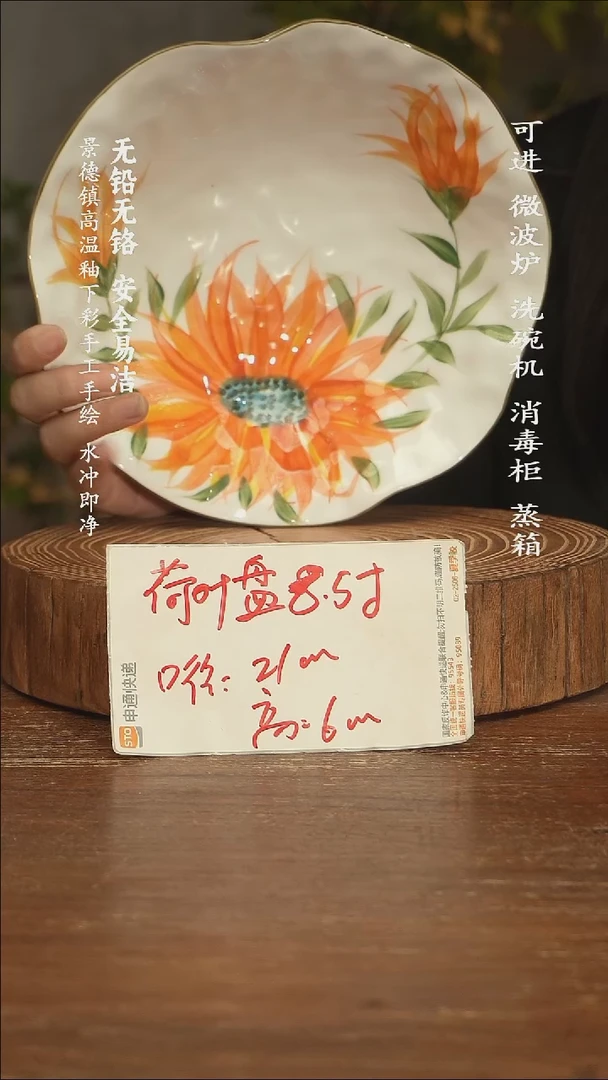 可进 微波炉 洗碗机 消毒柜 蒸箱
无铅无铬 安全易洁
景德镇高温釉下彩手工手绘 水冲即净
荷叶盘8.5寸
口径:21cm
高:6cm
STO申通快递